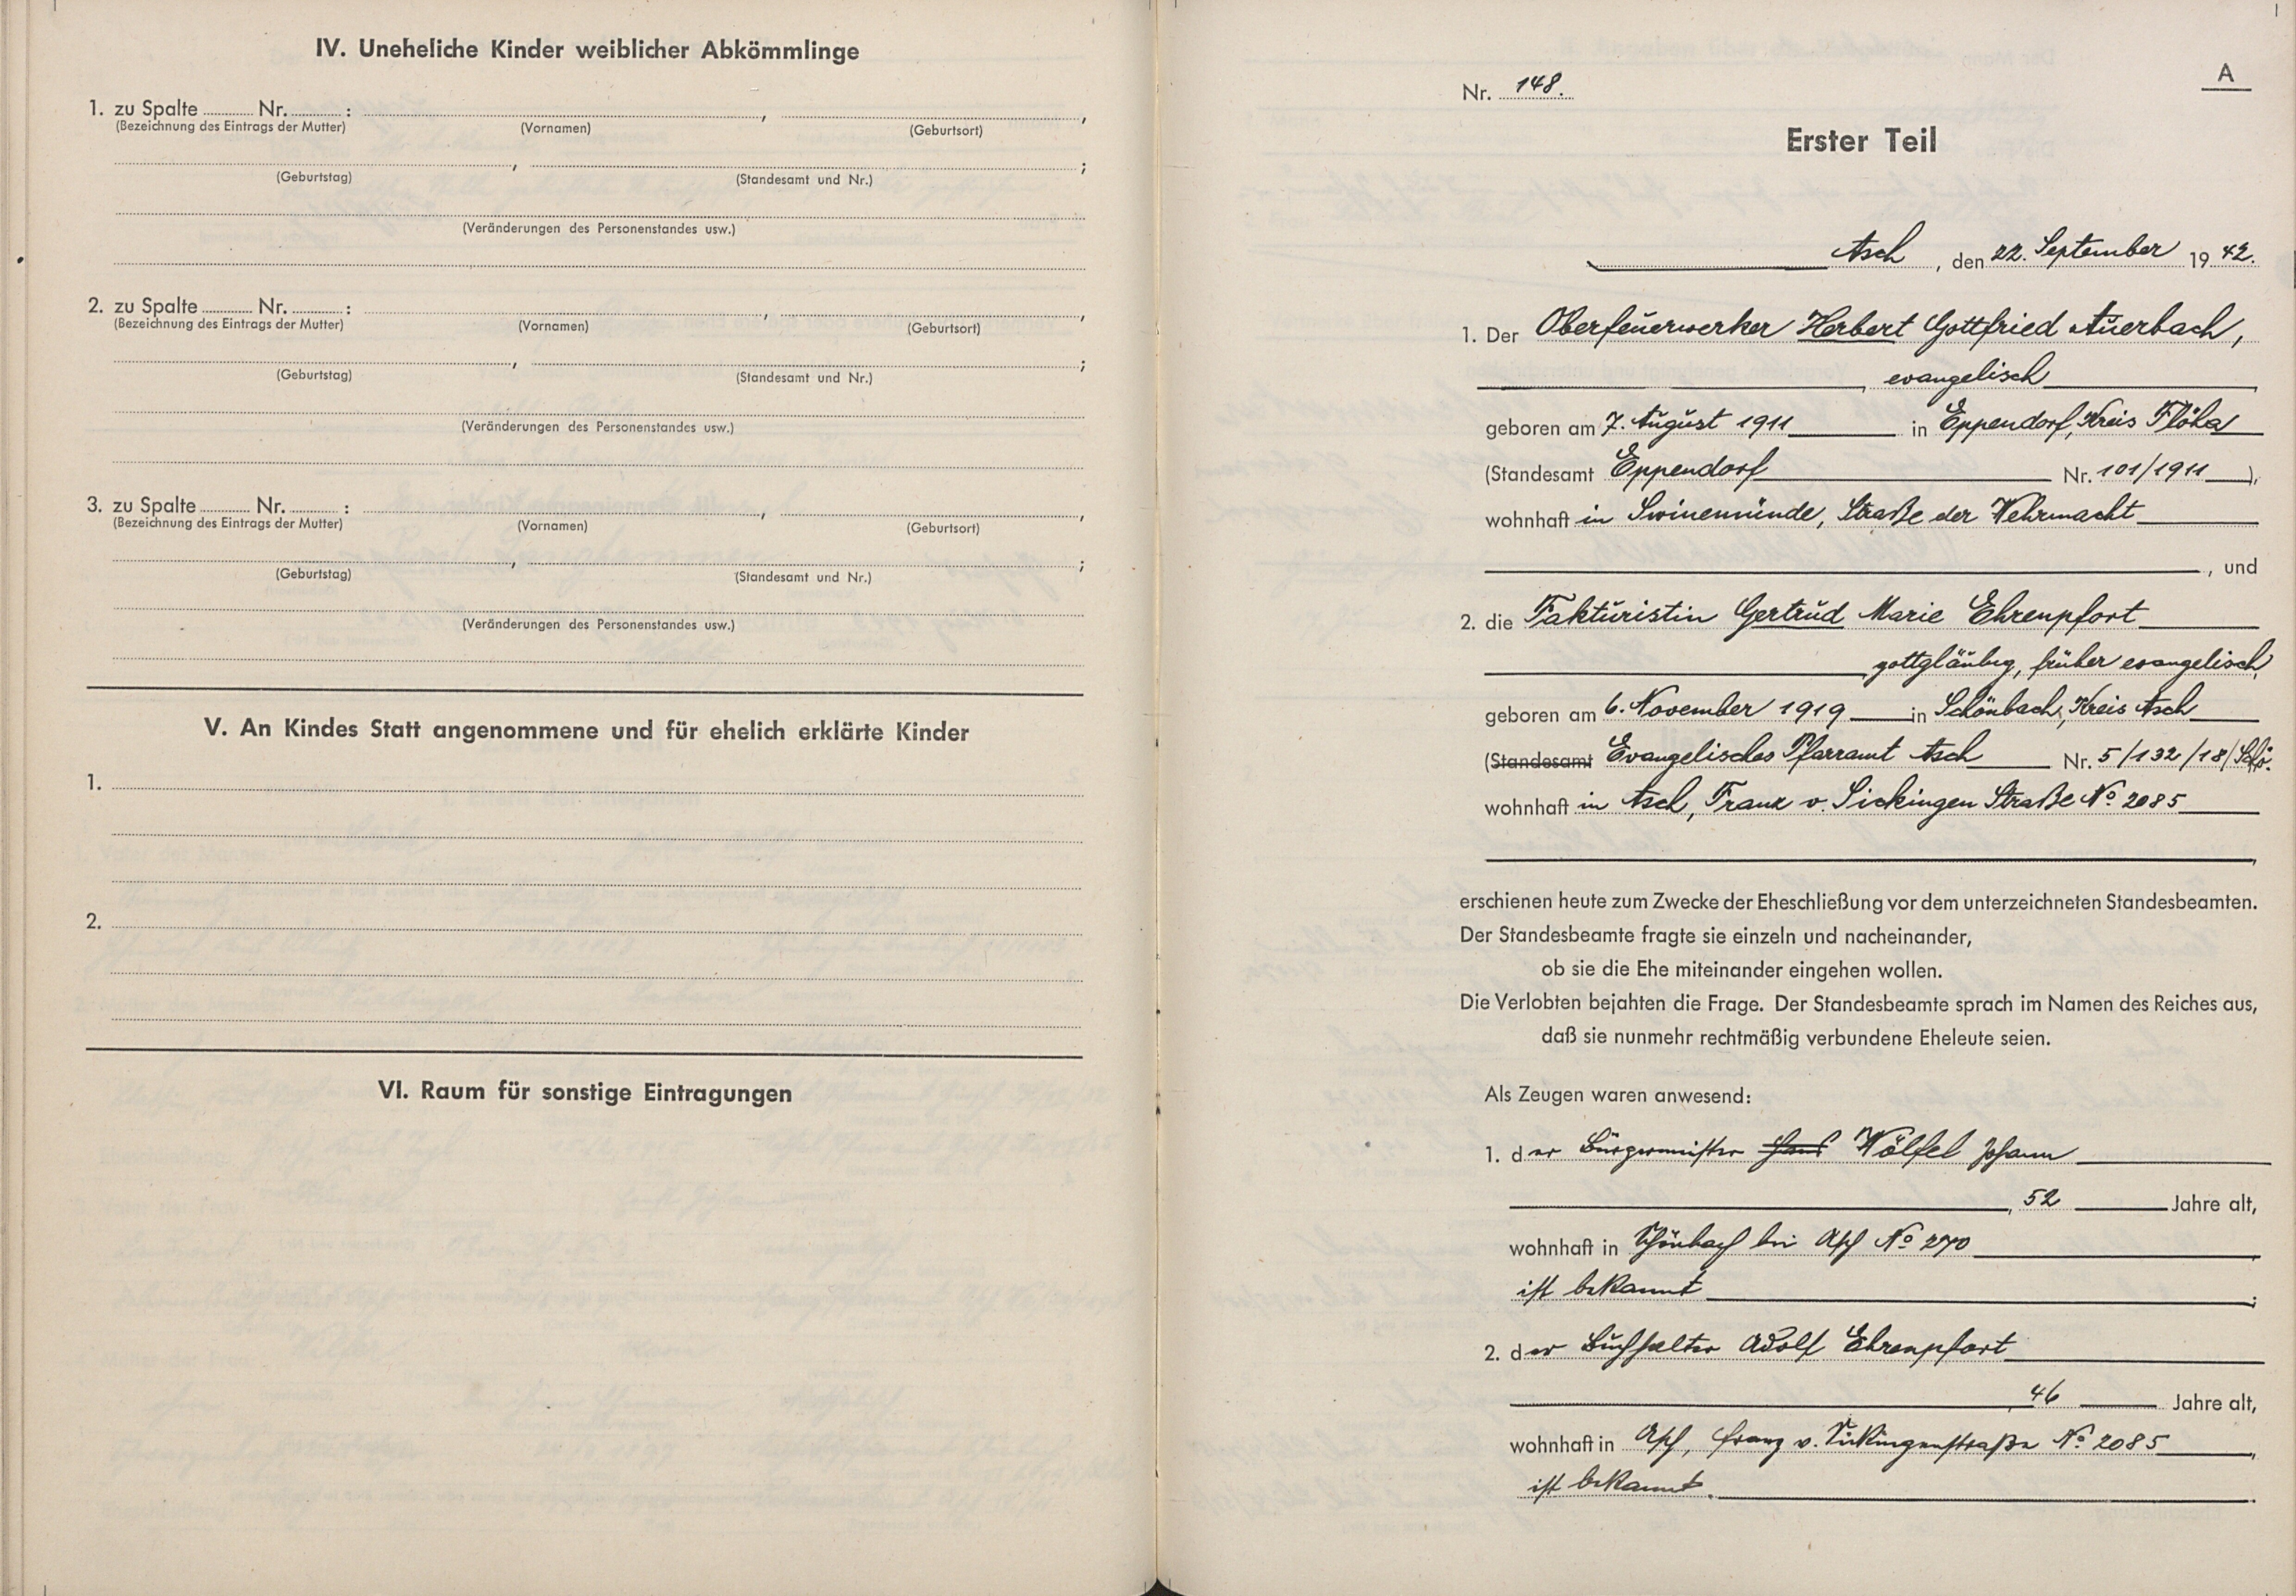 IV. Uneheliche Kinder weiblicher Abkömmlinge
1. zu Spalte ......... Nr. ......... : ,  ,
(Bezeichnung des Eintrags der Mutter) (Vornamen) (Geburtsort)
, ;
(Geburtstag) (Standesamt und Nr.)
(Veränderungen des Personenstandes usw.)
2. zu Spalte ......... Nr. ......... : ,  ,
(Bezeichnung des Eintrags der Mutter) (Vornamen) (Geburtsort)
, ;
(Geburtstag) (Standesamt und Nr.)
(Veränderungen des Personenstandes usw.)
3. zu Spalte ......... Nr. ......... : ,  ,
(Bezeichnung des Eintrags der Mutter) (Vornamen) (Geburtsort)
, ;
(Geburtstag) (Standesamt und Nr.)
(Veränderungen des Personenstandes usw.)
V. An Kindes Statt angenommene und für ehelich erklärte Kinder
1.
2.
VI. Raum für sonstige Eintragungen
A
Nr. 148.
Erster Teil
Asch, den 22. September 1942.
1. Der Oberfeuerwerker Herbert Gottfried Auerbach,
, evangelisch
geboren am 7. August 1911 in Eppendorf, Kreis Flöha
(Standesamt Eppendorf Nr. 101/1911),
wohnhaft in Swinemünde, Straße der Wehrmacht
, und
2. die Fakturistin Gertrud Marie Ehrenpfort
, gottgläubig, früher evangelisch,
geboren am 6. November 1919 in Schönbach, Kreis Asch
(Standesamt Evangelisches Pfarramt Asch Nr. 5/132/18/Schö.
wohnhaft in Asch, Franz v. Sickingen Straße No 2085
,
erschienen heute zum Zwecke der Eheschließung vor dem unterzeichneten Standesbeamten.
Der Standesbeamte fragte sie einzeln und nacheinander,
ob sie die Ehe miteinander eingehen wollen.
Die Verlobten bejahten die Frage. Der Standesbeamte sprach im Namen des Reiches aus,
daß sie nunmehr rechtmäßig verbundene Eheleute seien.
Als Zeugen waren anwesend:
1. der Bürgermeister Wölfel Johann
, 52 Jahre alt,
wohnhaft in Schönbach bei Asch No 270
ist bekannt ;
2. der Buchhalter Adolf Ehrenpfort
, 46 Jahre alt,
wohnhaft in Asch, Franz v. Sickingenstraße No 2085,
ist bekannt.